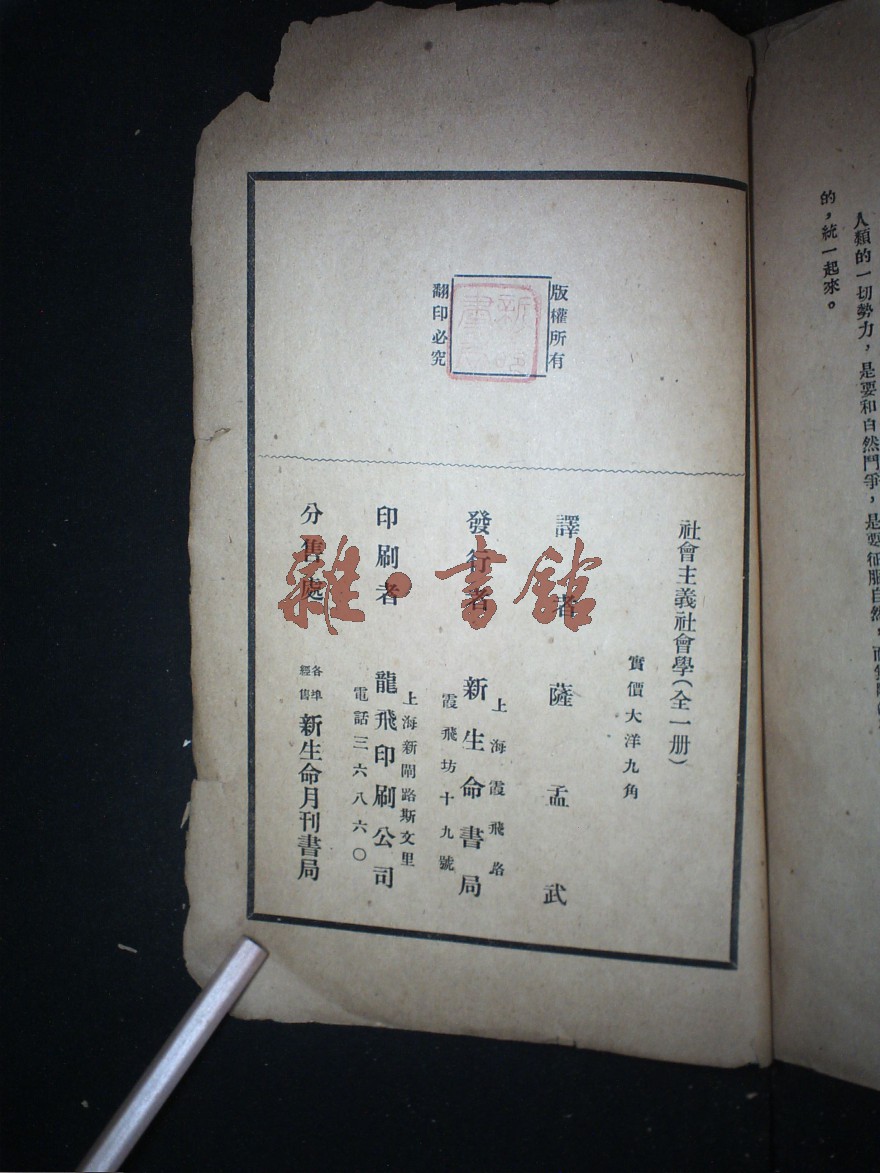 人類的一切勢力，是要和自然鬥爭，是要征服自然，而
的，統一起來。
版權所有
翻印必究
社會主義社會學（全一册）
實價大洋九角
譯者 薩孟武
上海霞飛路
發行者 新生命書局
霞飛坊十九號
上海新閘路斯文里
印刷者 龍飛印刷公司
電話三六八六〇
各埠
分售處 新生命月刊書局
經售
雜·書館